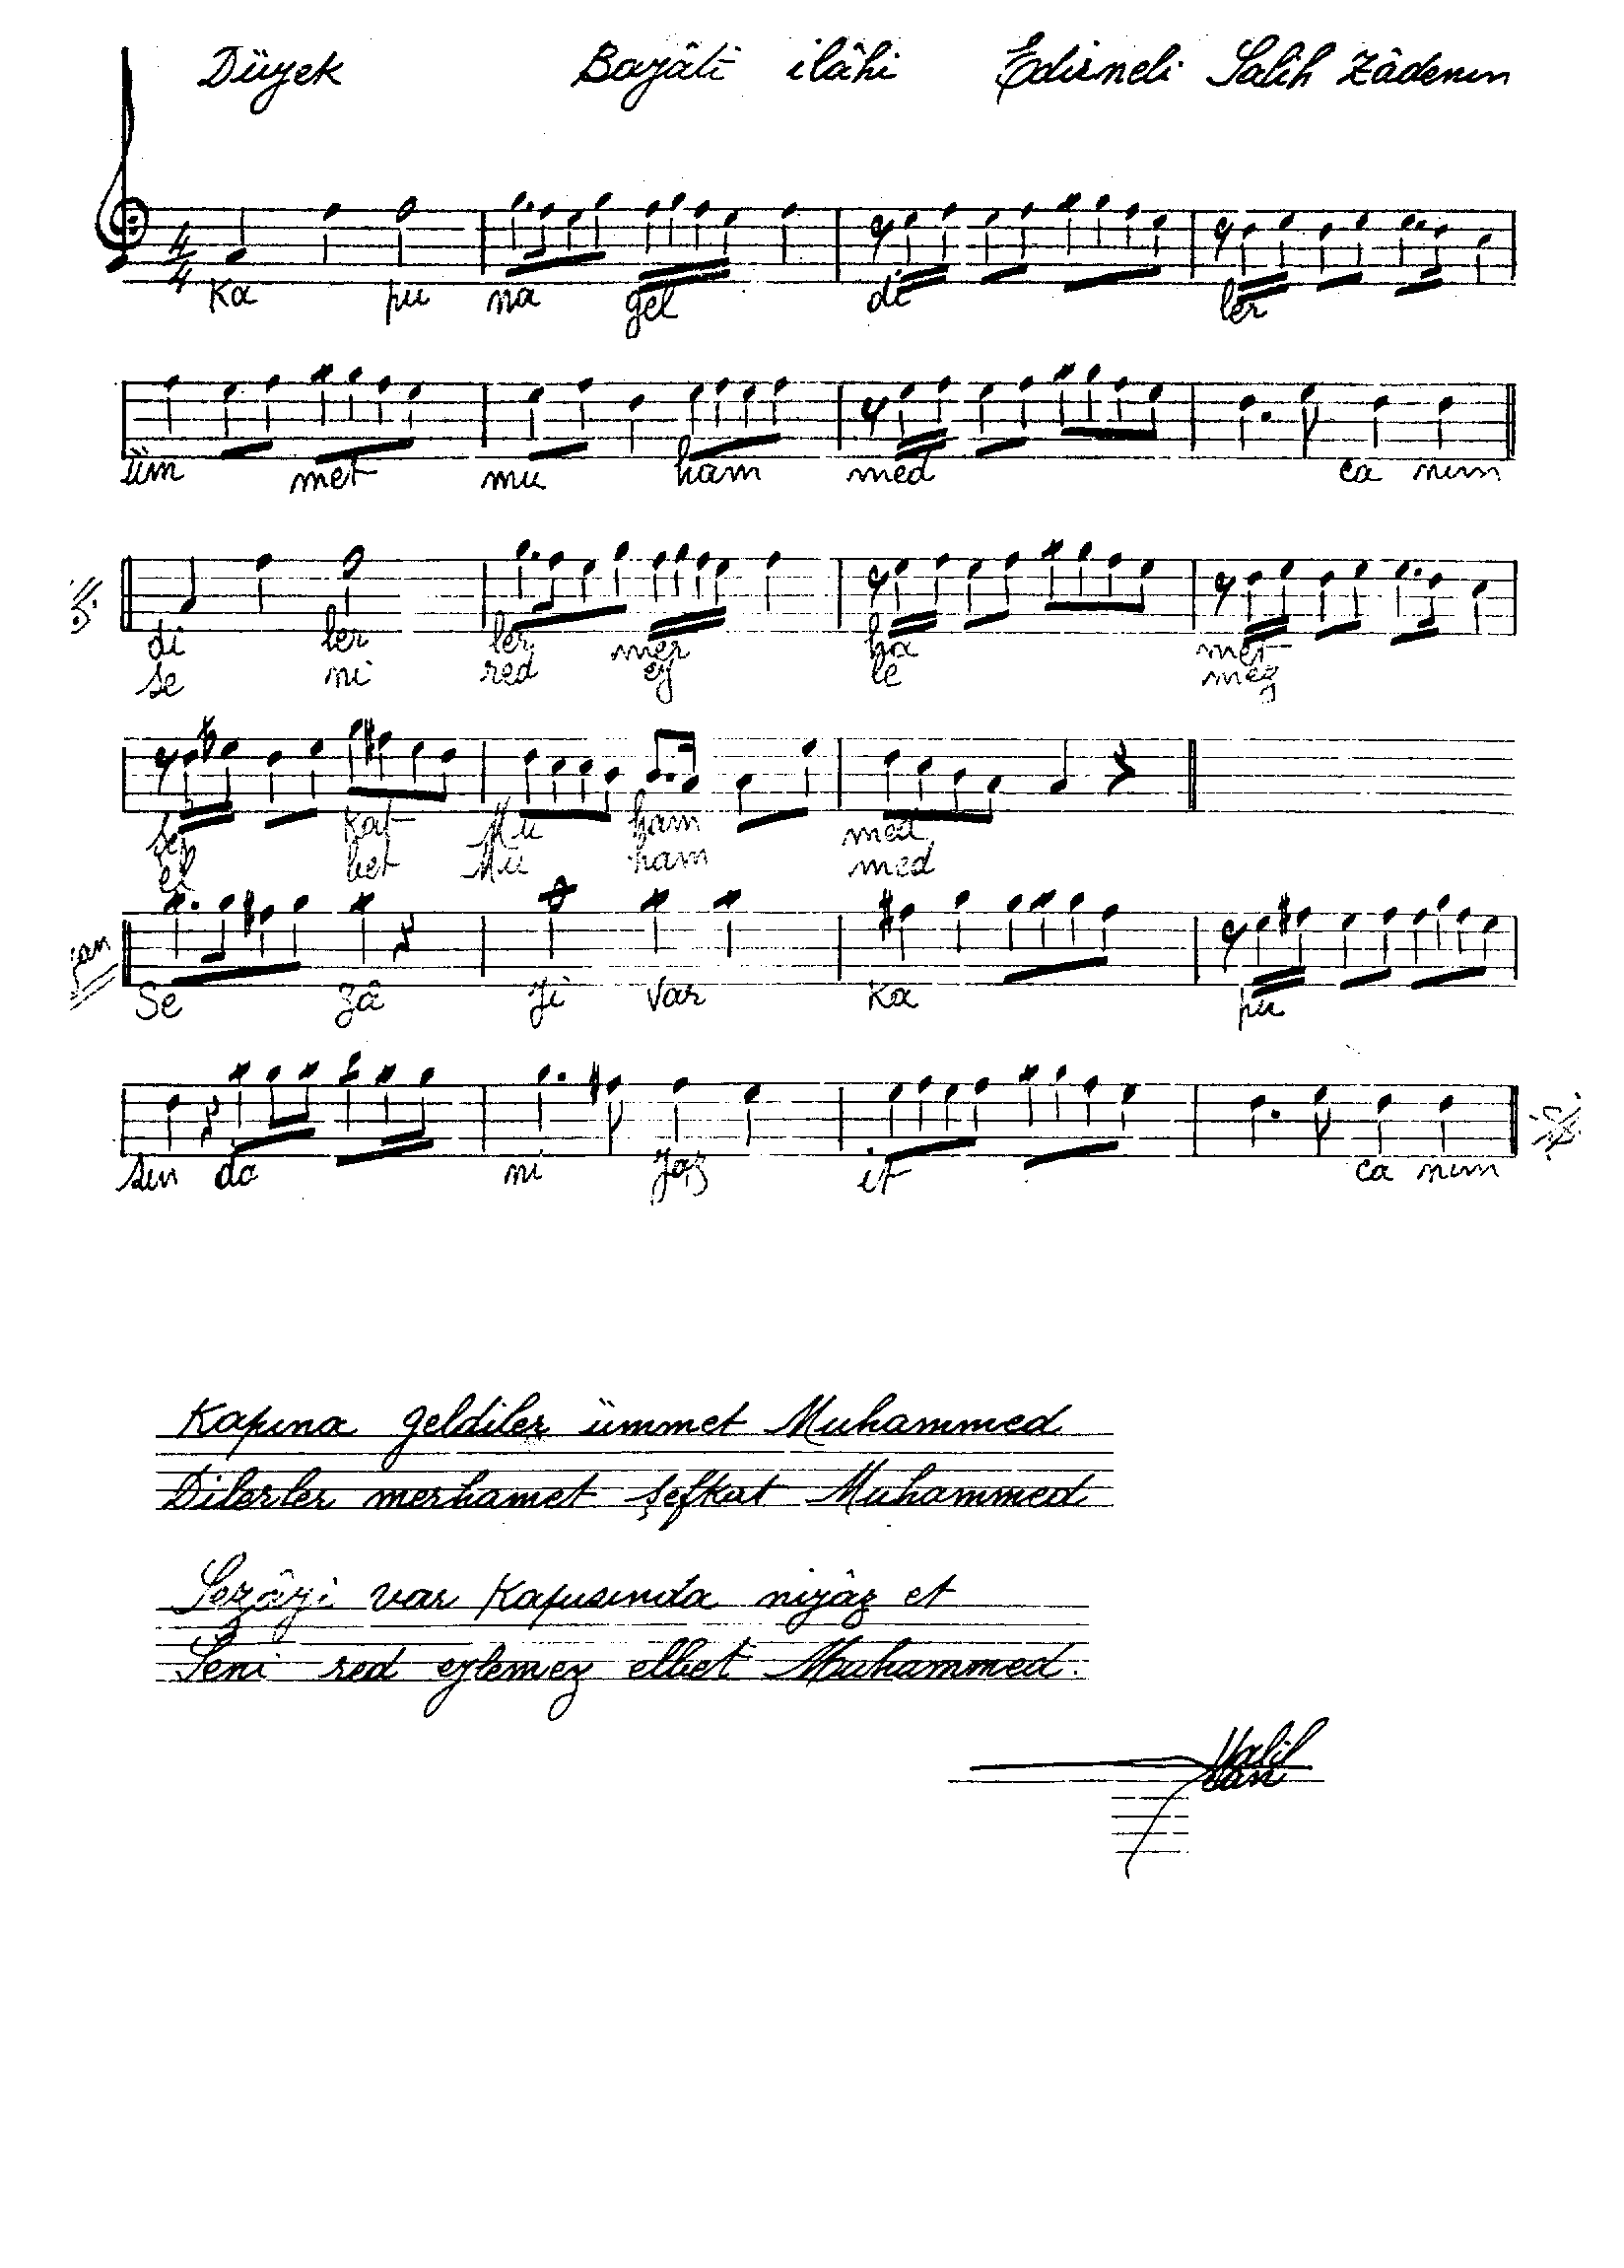 Düyek Bayâti ilâhi Edirneli Salih Zâdenin
4/4
Ka pu na gel di ler
üm met mu ham med ca nım
di ler ler mer ha met
se ni red ey le mez
şef kat Mu ham med
el bet Mu ham med
Se zâ yi var Ka pu
sın da ni yaz it ca nım
Kapına geldiler ümmet Muhammed
Dilerler merhamet şefkat Muhammed
Sezâyi var Kapusında niyâz et
Seni red eylemez elbet Muhammed.
Halil Can